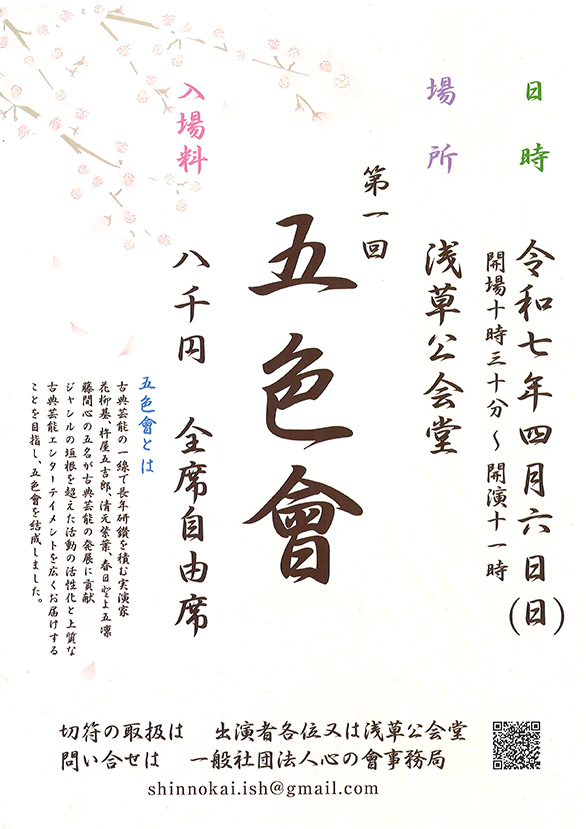 日時
令和七年四月六日(日)
開場十時三十分～開演十一時
場所
浅草公会堂
第一回
五色會
入場料
八千円　全席自由席
五色會とは
古典芸能の一線で長年研鑽を積む実演家
花柳基、杵屋五吉郎、清元紫葉、春日とよ五凛
藤間心の五名が古典芸能の発展に貢献
ジャンルの垣根を超えた活動の活性化と上質な
古典芸能エンターテイメントを広くお届けする
ことを目指し、五色會を結成しました。
切符の取扱は　出演者各位又は浅草公会堂
問い合せは　一般社団法人心の會事務局
shinnokai.ish@gmail.com